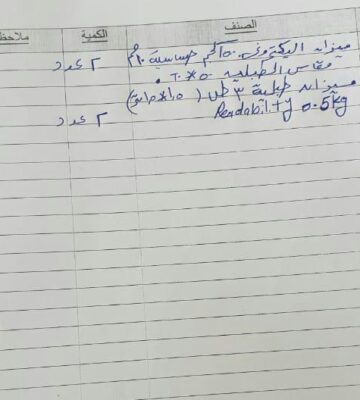 الصنف الكمية ملاحظ
ميزان اليكتروني ١٥٠ كجم حساسية ١٠ جم ٢ عدد
مقاس الطبلية ٥٠*٦٠
ميزان طبلية ٣ طن (١٫٥*١٫٥ متر) ٢ عدد
Readability 0.5kg